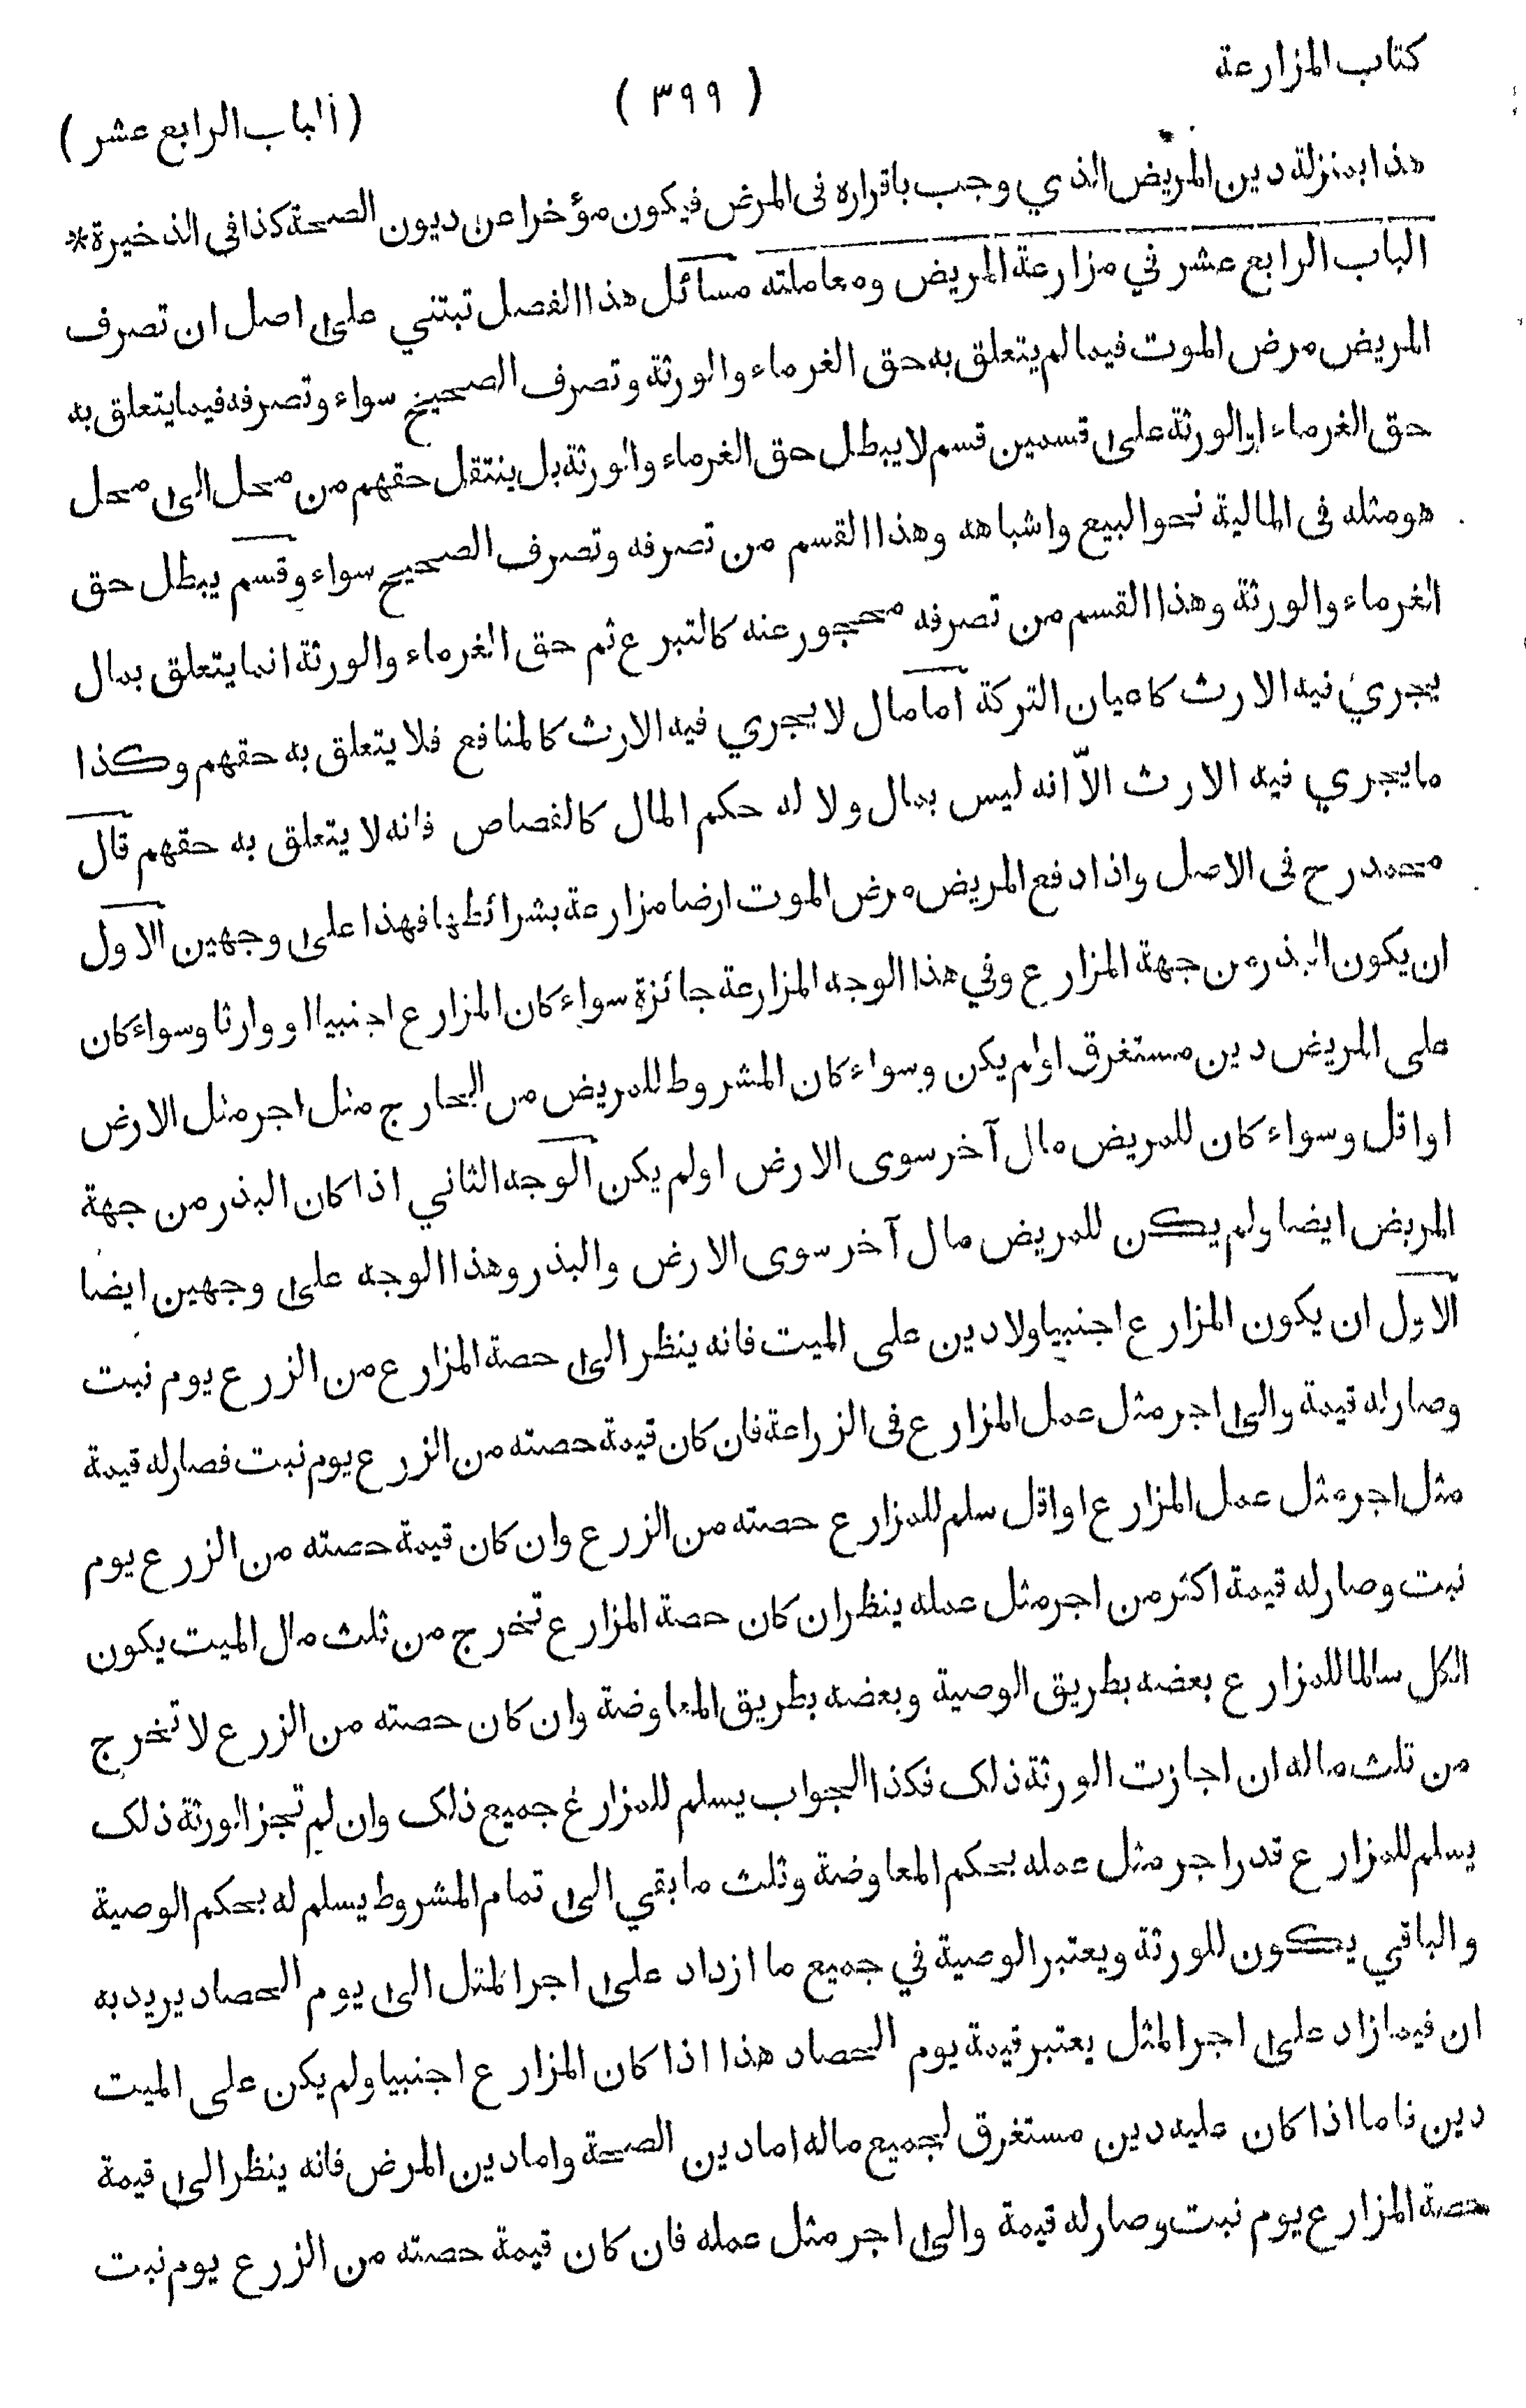 كتاب المزارعة
( ٣٩٩ )
( الباب الرابع عشر )
هذا بمنزلة دين المريض الذي وجب باقراره فى المرض فيكون مؤخرا عن ديون الصحة كذا فى الذخيرة *
الباب الرابع عشر في مزارعة المريض ومعاملته مسائل هذا الفصل تبتني على اصل ان تصرف
المريض مرض الموت فيما لم يتعلق به حق الغرماء والورثة وتصرف الصحيح سواء وتصرفه فيما يتعلق به
حق الغرماء او الورثة على قسمين قسم لا يبطل حق الغرماء والورثة بل ينتقل حقهم من محل الى محل
هو مثله فى المالية نحو البيع واشباهه وهذا القسم من تصرفه وتصرف الصحيح سواء وقسم يبطل حق
الغرماء والورثة وهذا القسم من تصرفه محجور عنه كالتبرع ثم حق الغرماء والورثة انما يتعلق بمال
يجري فيه الارث كاعيان التركة اما مال لا يجري فيه الارث كالمنافع فلا يتعلق به حقهم وكذا
ما يجري فيه الارث الّا انه ليس بمال ولا له حكم المال كالقصاص فانه لا يتعلق به حقهم قال
محمد رح فى الاصل واذا دفع المريض مرض الموت ارضا مزارعة بشرائطها فهذا على وجهين الاول
ان يكون البذر من جهة المزارع وفي هذا الوجه المزارعة جائزة سواء كان المزارع اجنبيا او وارثا وسواء كان
على المريض دين مستغرق اولم يكن وسواء كان المشروط للمريض من الخارج مثل اجر مثل الارض
او اقل وسواء كان للمريض مال آخر سوى الارض اولم يكن الوجه الثاني اذا كان البذر من جهة
المريض ايضا ولم يكن للمريض مال آخر سوى الارض والبذر وهذا الوجه على وجهين ايضا
الاول ان يكون المزارع اجنبيا ولا دين على الميت فانه ينظر الى حصة المزارع من الزرع يوم نبت
وصار له قيمة والى اجر مثل عمل المزارع فى الزراعة فان كان قيمة حصته من الزرع يوم نبت فصار له قيمة
مثل اجر مثل عمل المزارع او اقل سلم للمزارع حصته من الزرع وان كان قيمة حصته من الزرع يوم
نبت وصار له قيمة اكثر من اجر مثل عمله ينظر ان كان حصة المزارع تخرج من ثلث مال الميت يكون
الكل سالما للمزارع بعضه بطريق الوصية وبعضه بطريق المعاوضة وان كان حصته من الزرع لا تخرج
من ثلث ماله ان اجازت الورثة ذلك فكذا الجواب يسلم للمزارع جميع ذلك وان لم تجز الورثة ذلك
يسلم للمزارع قدر اجر مثل عمله بحكم المعاوضة وثلث ما بقي الى تمام المشروط يسلم له بحكم الوصية
والباقي يكون للورثة ويعتبر الوصية في جميع ما ازداد على اجر المثل الى يوم الحصاد يريد به
ان فيما زاد على اجر المثل يعتبر قيمة يوم الحصاد هذا اذا كان المزارع اجنبيا ولم يكن على الميت
دين فاما اذا كان عليه دين مستغرق لجميع ماله اما دين الصحة واما دين المرض فانه ينظر الى قيمة
حصة المزارع يوم نبت وصار له قيمة والى اجر مثل عمله فان كان قيمة حصته من الزرع يوم نبت